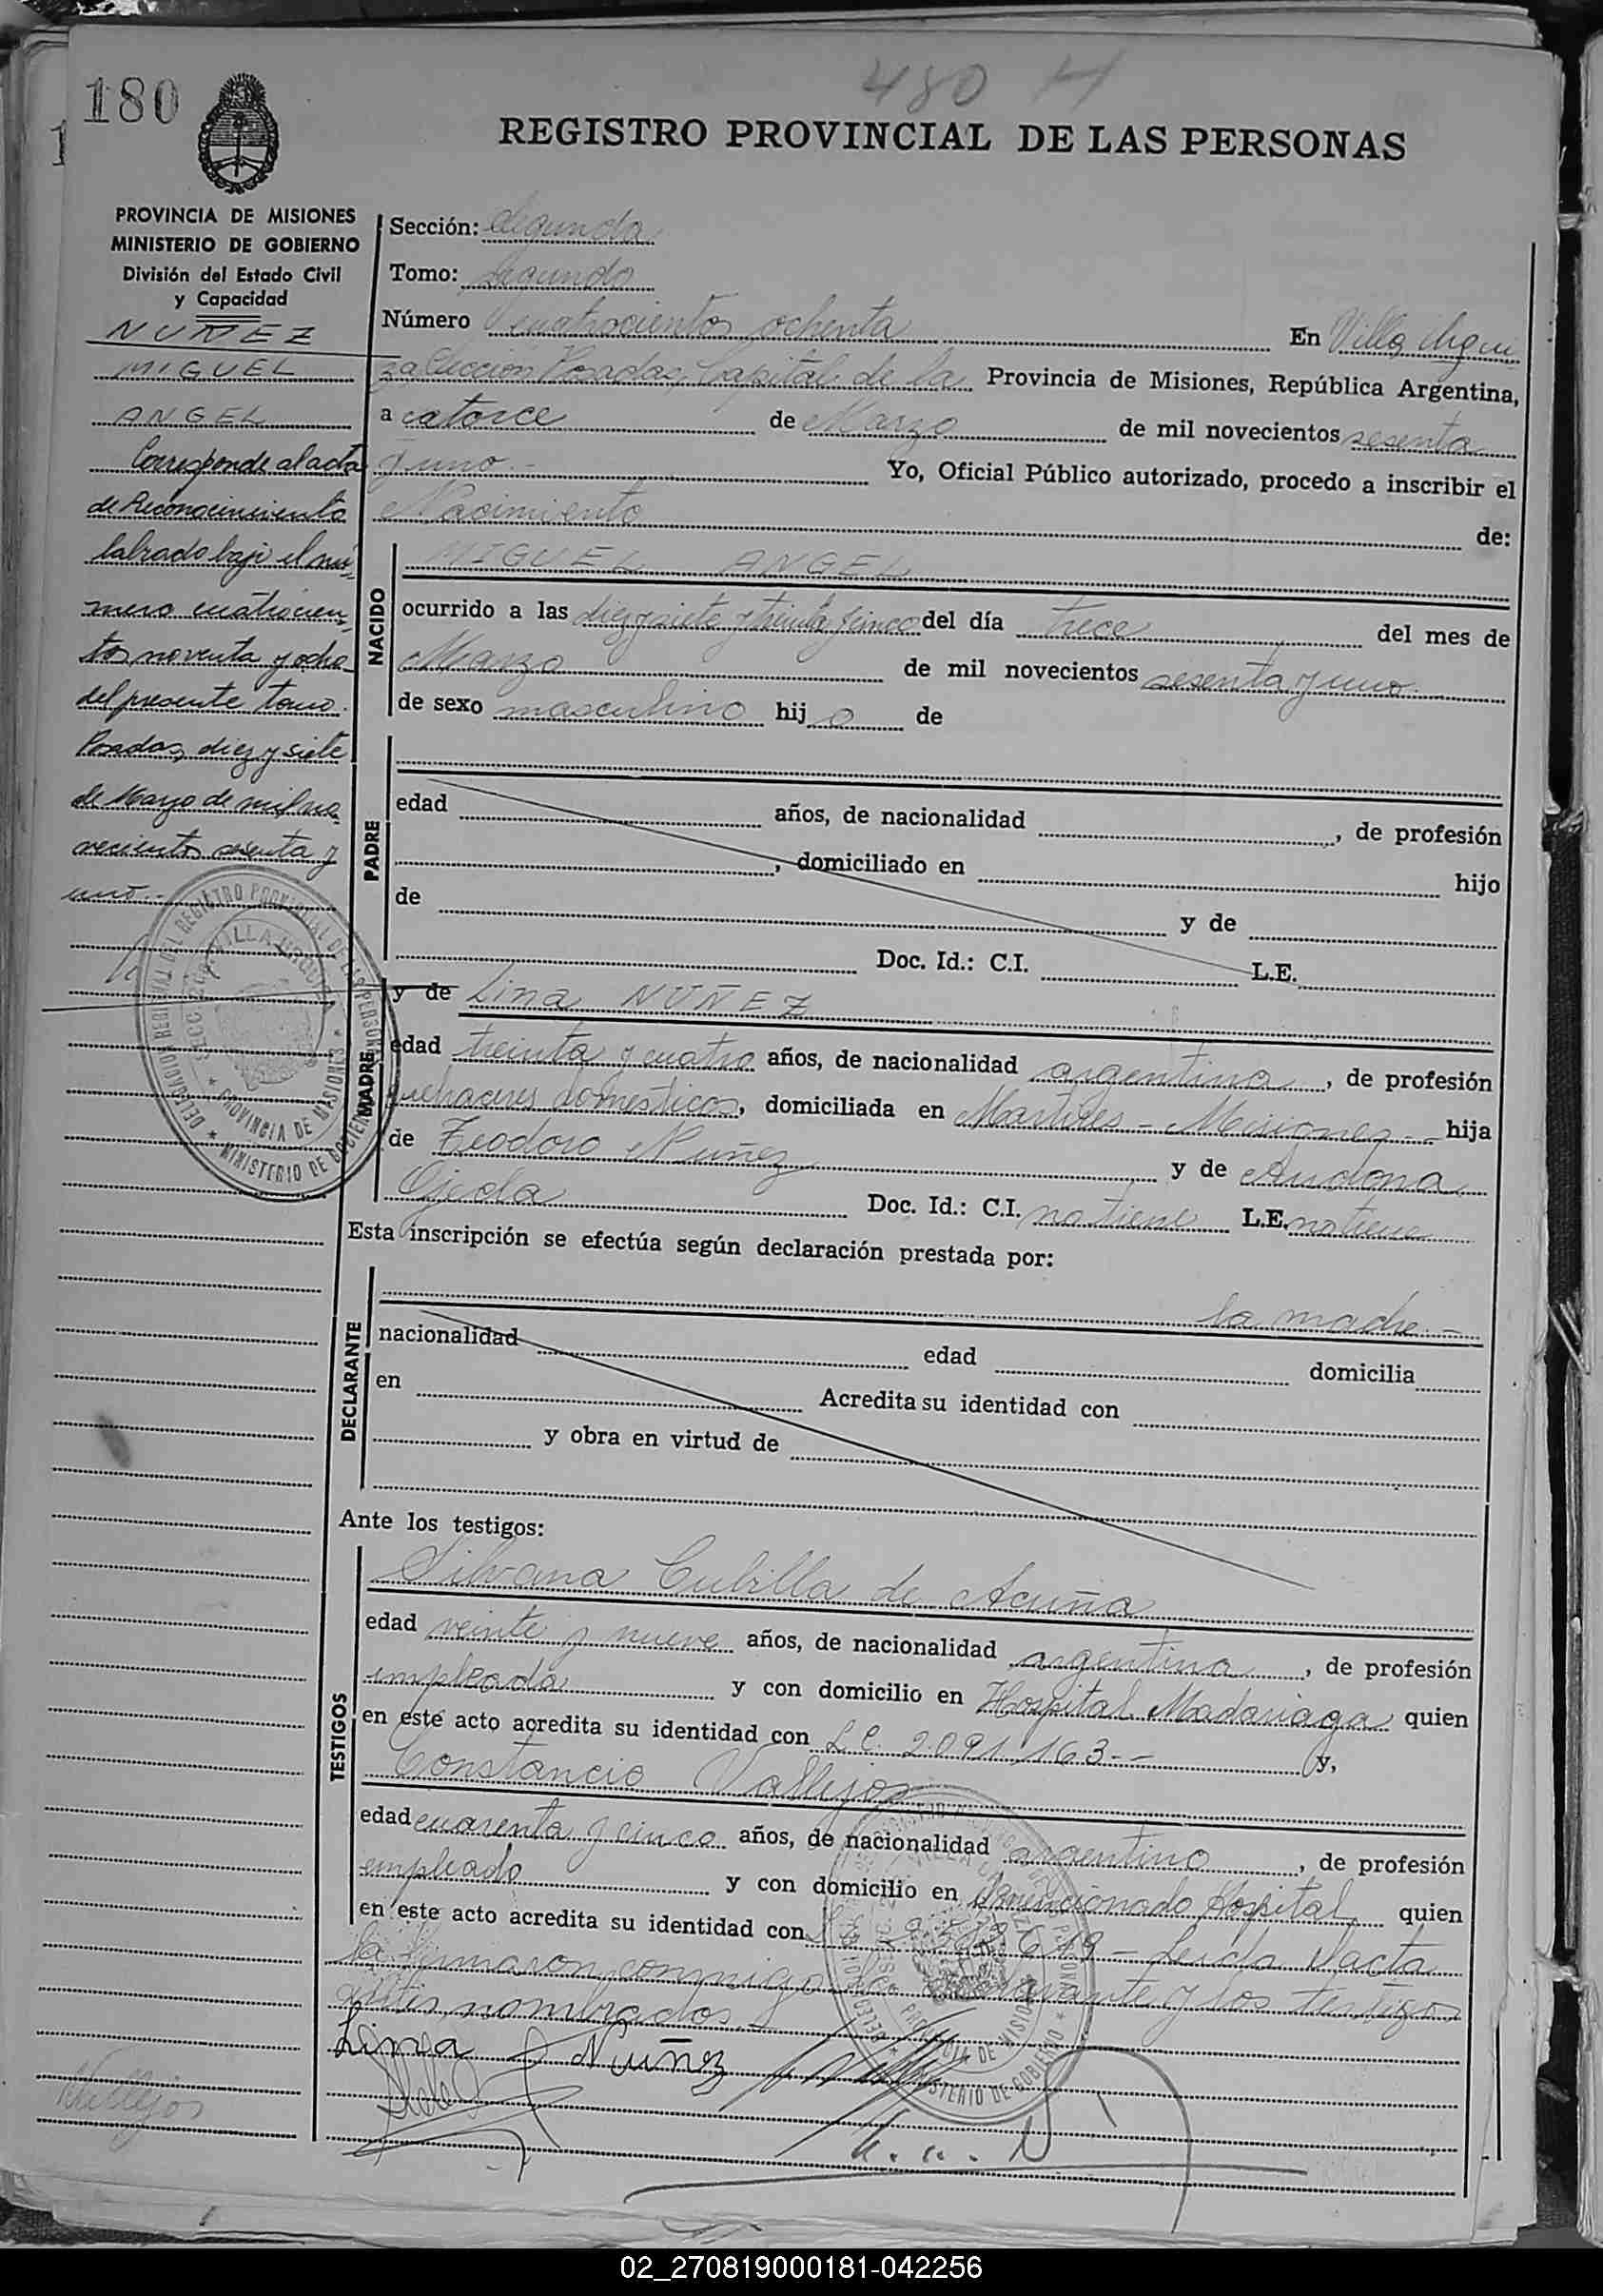 180
480 H
REGISTRO PROVINCIAL DE LAS PERSONAS
PROVINCIA DE MISIONES
MINISTERIO DE GOBIERNO
División del Estado Civil
y Capacidad
NUÑEZ
MIGUEL
ANGEL
Corresponde al acta
de Reconocimiento
labrado bajo el nú-
mero cuatrocien-
tos noventa y ocho
del presente tomo.
Posadas, diez y siete
de Mayo de mil no-
vecientos sesenta y
uno.-
Sección: Segunda
Tomo: Segundo
Número cuatrocientos ochenta En Villa Urqui
za Sección Posadas, Capital de la Provincia de Misiones, República Argentina,
a catorce de Marzo de mil novecientos sesenta
y uno.- Yo, Oficial Público autorizado, procedo a inscribir el
Nacimiento de:
NACIDO
MIGUEL ANGEL
ocurrido a las diez y siete y treinta y cinco del día trece del mes de
Marzo de mil novecientos sesenta y uno
de sexo masculino hijo de
PADRE
edad años, de nacionalidad , de profesión
, domiciliado en hijo
de y de
Doc. Id.: C.I. L.E.
MADRE
y de Lina NUÑEZ
edad treinta y cuatro años, de nacionalidad argentina, de profesión
quehaceres domésticos, domiciliada en Mártires - Misiones - hija
de Teodoro Nuñez y de
Ojeda Doc. Id.: C.I. no tiene L.E. no tiene
Esta inscripción se efectúa según declaración prestada por:
DECLARANTE
la madre.-
nacionalidad edad domicilia
en Acredita su identidad con
y obra en virtud de
Ante los testigos:
TESTIGOS
Silvana Cubilla de Acuña
edad veinte y nueve años, de nacionalidad argentina, de profesión
empleada y con domicilio en Hospital Madariaga quien
en este acto acredita su identidad con L.C. 2.091.163-- y,
Constancio Vallejos
edad cuarenta y cinco años, de nacionalidad argentino, de profesión
empleado y con domicilio en mencionado Hospital quien
en este acto acredita su identidad con Leida el acta
la firmaron conmigo la declarante y los testigos
antes nombrados.-
Lina Nuñez
Vallejos
DELEGACION REGIONAL DEL REGISTRO PROVINCIAL DE LAS PERSONAS
SECC. 2da. VILLA URQUIZA
PROVINCIA DE MISIONES
MINISTERIO DE GOBIERNO
02_270819000181-042256